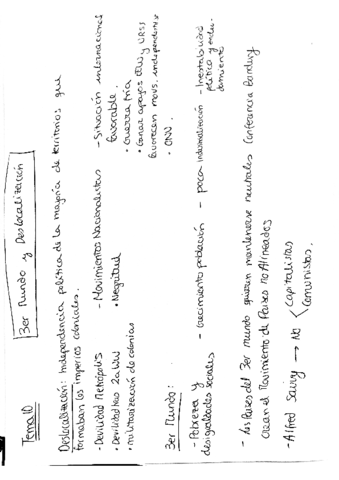 Tema 10
3er Mundo y Deslocalización
Deslocalización: Independencia política de la mayoría de territorios que
formaban los imperios coloniales.
- Devilidad Metrópolis
• Devilidad tras 2a WW
• militarización de colonias
- Movimientos Nacionalistas
• Negritud
- Situación internacional
favorable.
• Guerra Fría
• Ganar apoyos EEUU y URSS
favorecen movs. independentistas
• ONU.
3er Mundo:
- Pobreza y
desigualdades sociales
- crecimiento población
- poca industrialización
- Inestabilidad
política y endeu-
damiento
- los Países del 3er mundo quieren mantenerse neutrales (Conferencia Bandung)
Crean el Movimiento de Países no Alineados
- Alfred Sauvy → No
capitalistas
comunistas.